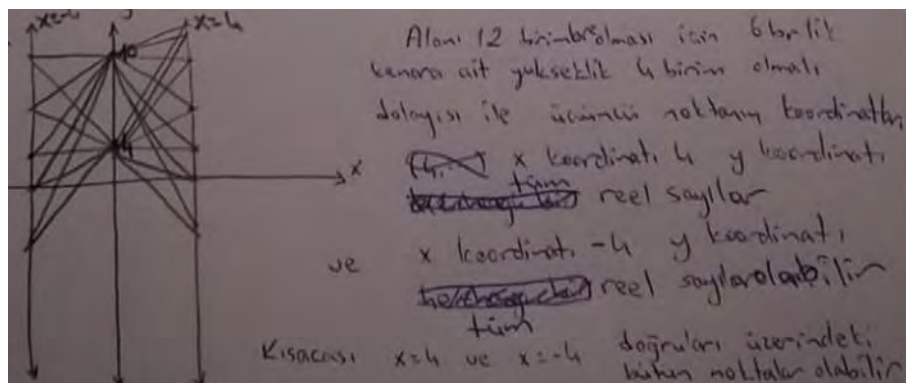 x=-4 y x=4
10
4
x
Alanı 12 birimbr olması için 6 brlik
kenara ait yükseklik 4 birim olmalı
dolayısı ile üçüncü noktanın koordinatları
x koordinatı 4 y koordinatı
tüm reel sayılar
ve x koordinatı -4 y koordinatı
reel sayılar olabilir
tüm
Kısacası x=4 ve x=-4 doğruları üzerindeki
bütün noktalar olabilir